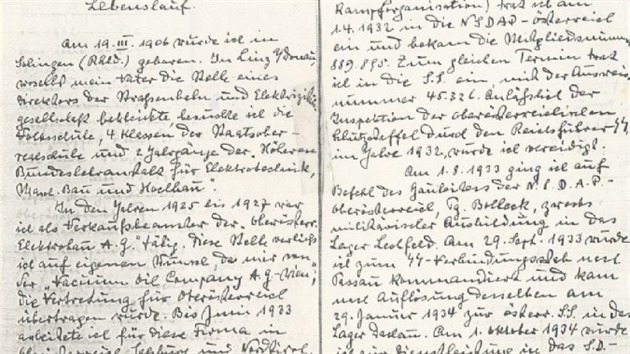 Lebenslauf.
Am 19. III. 1906 wurde ich in
Solingen (Rhld.) geboren. In Linz a/Donau,
woselbst mein Vater die Stelle eines
Direktors der Strassenbahn und Elektrizitäts
gesellschaft bekleidete besuchte ich die
Volksschule, 4 Klassen der Staatsober
realschule und 2 Jahrgänge der "Höheren
Bundeslehranstalt für Elektrotechnik,
Masch. Bau und Hochbau".
In den Jahren 1925 bis 1927 war
ich als Verkaufsbeamter der "Oberösterr.
Elektrobau A.G. tätig. Diese Stelle verliess
ich auf eigenen Wunsch, da mir von
der "Vacuum Oil Company A.G. Wien,
die Vertretung für Oberösterreich
übertragen wurde. Bis Juni 1933
arbeitete ich für diese Firma in
Oberösterreich, Salzburg und Nordtirol.
Kampforganisation) trat ich am
1.4.1932 in die N.S.D.A.P. Österreich
ein und bekam die Mitgliedsnummer
889.895. Zum gleichen Termin trat
ich in die S.S. ein, mit der Ausweis
nummer 45.326. Anlässlich der
Inspektion der oberösterreichischen
Schutzstaffel durch den Reichsführer SS,
im Jahre 1932, wurde ich vereidigt.
Am 1.8.1933 ging ich auf
Befehl des Gauleiters der N.S.D.A.P.-
Oberösterreich, Pg. Bolleck, zwecks
militärischer Ausbildung in das
Lager Lechfeld. Am 29. Sept. 1933 wurde
ich zum SS-Verbindungsstab nach
Passau kommandiert und kam
nach Auflösung desselben am
29. Januar 1934 zur österr. S.S. in das
Lager Dachau. Am 1. Oktober 1934 wurde
ich zur Dienstleistung in das S.D.-